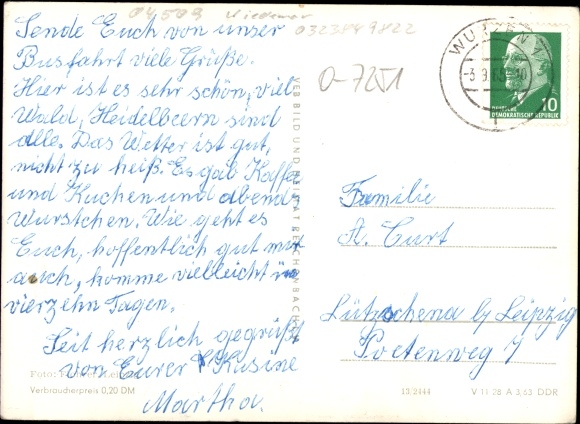 04509 Wiedemar
0323849822
Sende Euch von unser
Busfahrt viele Grüße.
Hier ist es sehr schön, viel
Wald, Heidelbeern sind
alle. Das Wetter ist gut,
nicht zu heiß. Es gab Kaffe
und Kuchen und abends
Wurstchen. Wie geht es
Euch, hoffentlich gut mir
auch, komme vielleicht in
vierzehn Tagen.
Seit herzlich gegrüßt
von Eurer Kusine
Martha.
Foto:
Verbraucherpreis 0,20 DM
VEB BILD UND HEIMAT REICHENBACH
O-7251
WURZEN 1
10
DEUTSCHE
DEMOKRATISCHE REPUBLIK
Familie
A. Curt
Lützschena b/ Leipzig
Poetenweg 7
13/2444
V 11 28 A 3/63 DDR